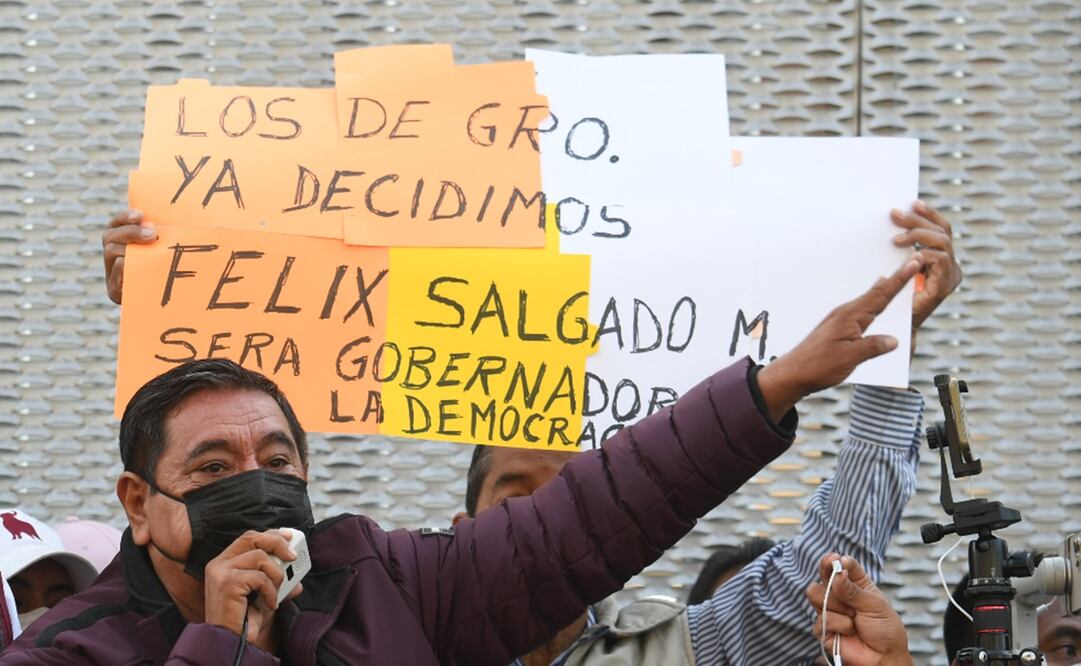 LOS DE GRO.
YA DECIDIMOS
FELIX SALGADO M.
SERA GOBERNADOR
LA DEMOCRAC